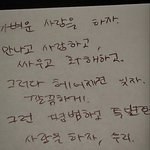 가벼운 사랑을 하자.
만나고 사랑하고,
싸우고 화해하고.
그러다 헤어져면 잊자.
깔끔하게.
그런 평범하고 특별한
사랑을 하자, 우리.